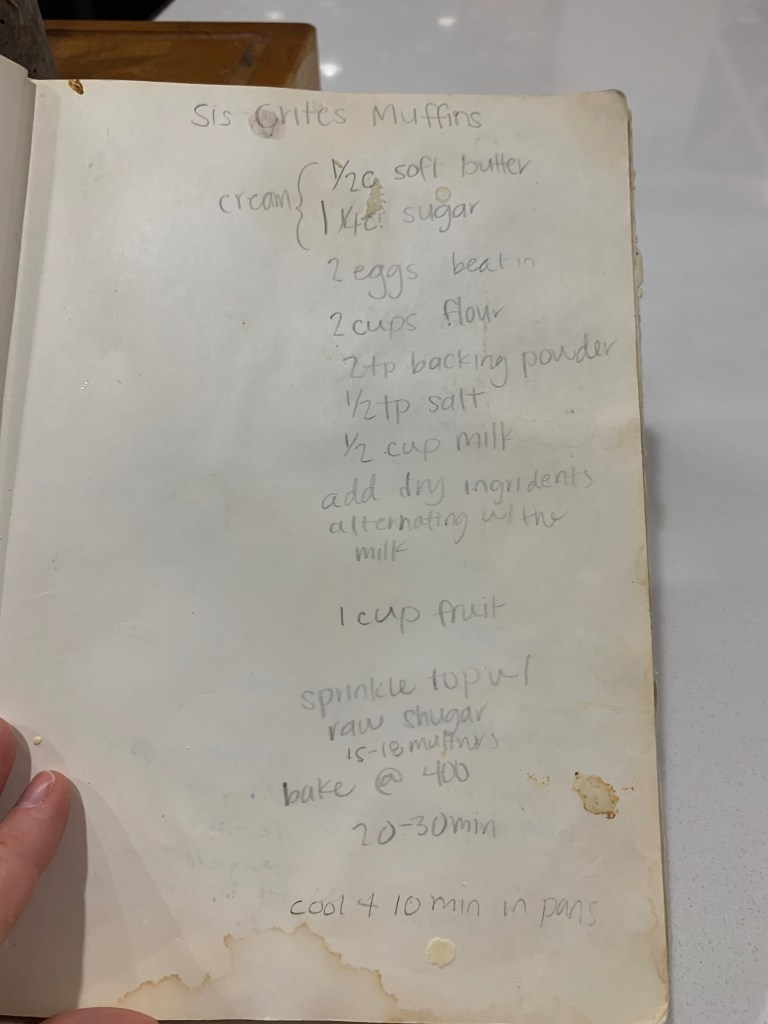 Sis Crites Muffins
cream { 1/2c soft butter
1 1/4c sugar
2 eggs beat in
2 cups flour
2 tp backing powder
1/2 tp salt
1/2 cup milk
add dry ingridents
alternating w/ the
milk
1 cup fruit
sprinkle top w/
raw shugar
15-18 muffins
bake @ 400
20-30 min
cool 4 10 min in pans